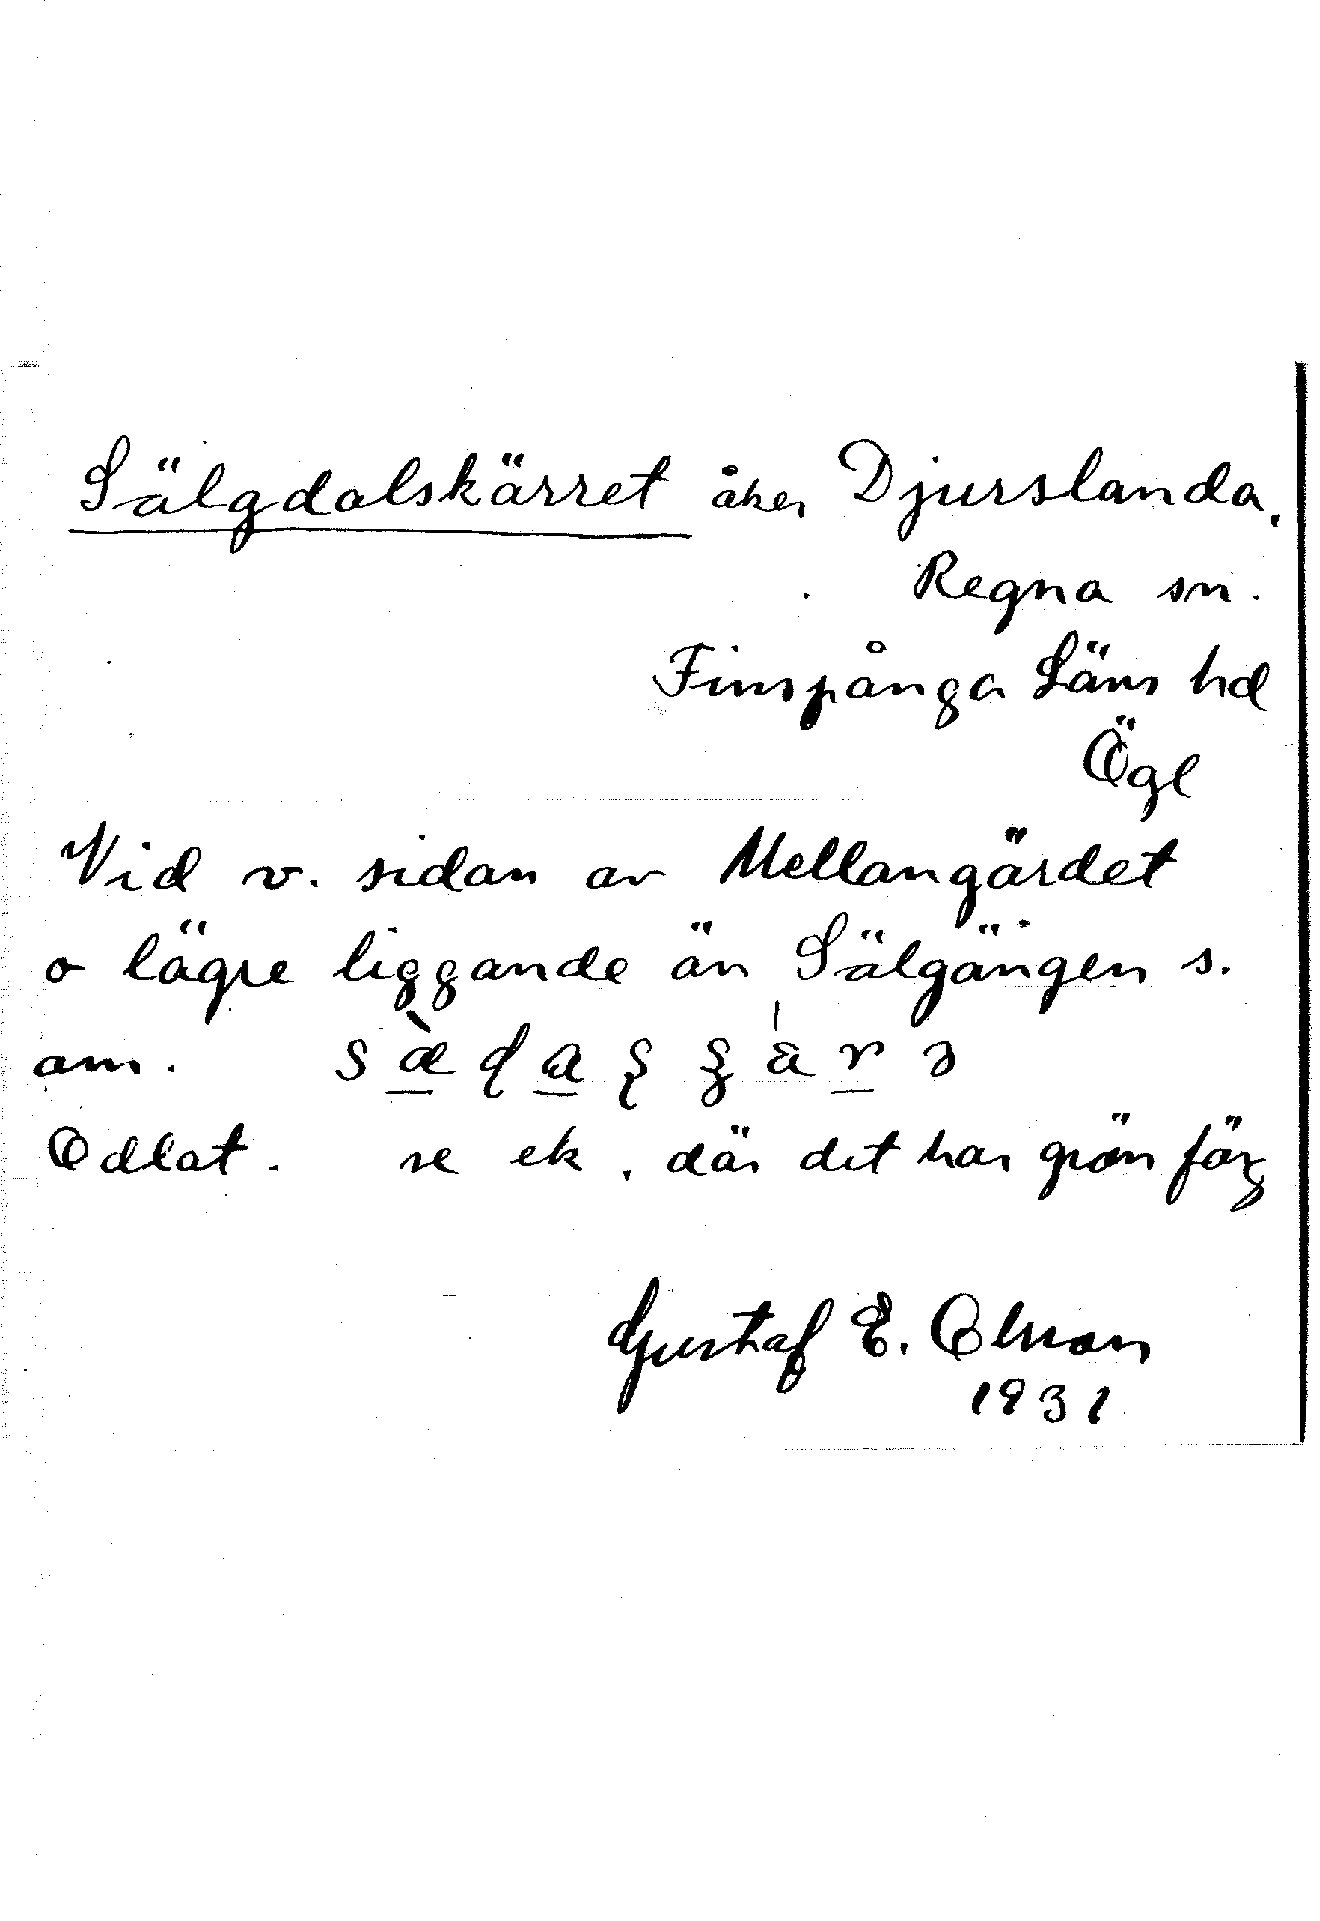 Sälgdalskärret åker Djurslanda.
Regna sn.
Finspånga Läns hd
Ögl
Vid v. sidan av Mellangärdet
o lägre liggande än Sälgängen s.
am.
Odlat. se ek, där det har grön färg
Gustaf E. Olsson
1931